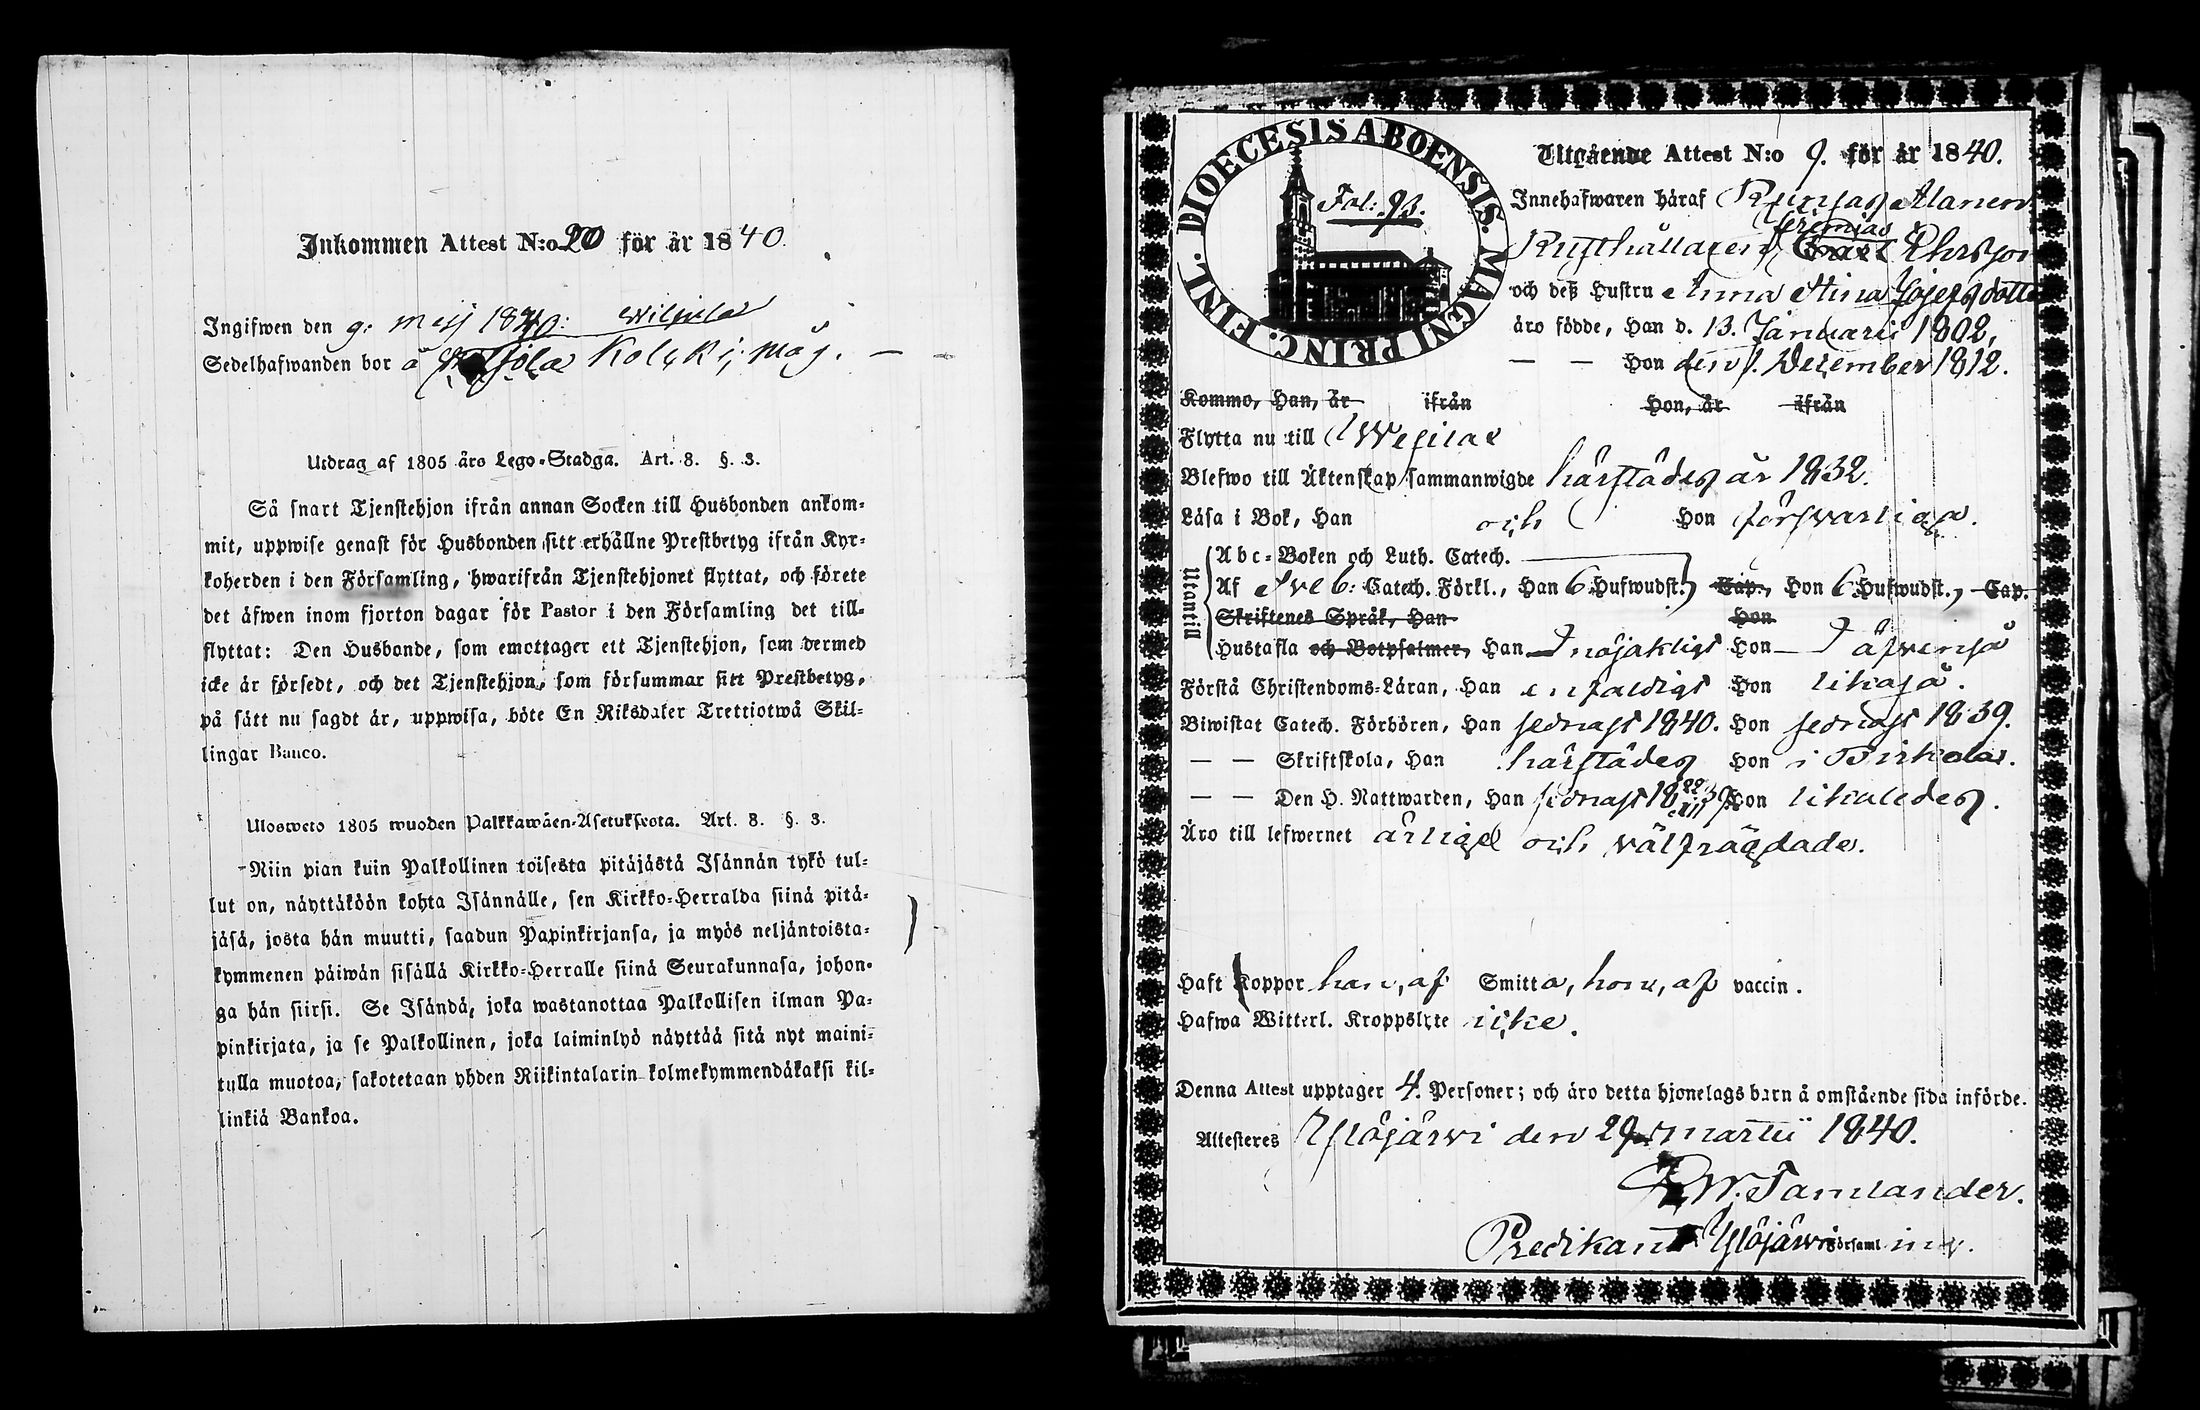 Inkommen Attest N:o 20 för år 1840.
Ingifwen den 9. Maij 1840. Wesilax
Sedelhafwanden bor å Kolcki,
Utdrag af 1805 års Lego-Stadga. Art. 8. §. 3.
Så snart Tjenstehjon ifrån annan Socken till Husbonden ankom-
mit, uppwise genast för Husbonden sitt erhållne Prestbetyg ifrån Kyr-
koherden i den Församling, hwarifrån Tjenstehjonet flyttat, och förete
det äfwen inom fjorton dagar för Pastor i den Församling det till-
flyttat: Den Husbonde, som emottager ett Tjenstehjon, som dermed
icke är försedt, och det Tjenstehjon, som försummar sitt Prestbetyg,
på sätt nu sagdt är, uppwisa, böte En Riksdaler Trettiotwå Skil-
lingar Banco.
Ulosweto 1805 wuoden Palkkawäen-Asetuksesta. Art. 8. §. 3.
Niin pian kuin Palkollinen toisesta pitäjästä Isännän tykö tul-
lut on, näyttäköön kohta Isännälle, sen Kirkko-Herralda siinä pitä-
jäsä, josta hän muutti, saadun Papinkirjansa, ja myös neljäntoista-
kymmenen päiwän sisällä Kirkko-Herralle siinä Seurakunnasa, johon-
ga hän siirsi. Se Isändä, joka wastanottaa Palkollisen ilman Pa-
pinkirjata, ja se Palkollinen, joka laiminlyö näyttää sitä nyt maini-
tulla muotoa, sakotetaan yhden Riikintalarin kolmekymmendäkaksi kil-
linkiä Bankoa.
DIOECESIS ABOENSIS. MAGNI PRINC. FINL.
Fol: 93.
Utgående Attest N:o 9. för år 1840.
Innehafwaren häraf Alanen
Jeremias
Rusthållaren Ehrsson
och deß Hustru Anna Stina Josefsdotter
äro födde, Han d. 13. Januarii 1802,
— — Hon den 1. December 1812.
Kommo, Han, är ifrån Hon, är ifrån
Flytta nu till Wesilax
Blefwo till Äktenskap sammanwigde härstädes år 1832.
Läsa i Bok, Han och Hon försvarliga.
Utantill
Abc-Boken och Luth. Catech.
Af Sveb: Catech. Förkl., Han 6 Hufwudst., Cap., Hon 6 Hufwudst., Cap.
Skriftenes Språk, Han Hon
Hustafla och Botpsalmer, Han nöjaktigt Hon äfvenså
Förstå Christendoms-Läran, Han enfaldigt Hon likaså.
Biwistat Catech. Förhören, Han sednast 1840. Hon sednast 1839.
— — Skriftskola, Han härstädes Hon i Birkala.
— — Den H. Nattwarden, Han sednast 18 22/III 39. Hon likaledes.
Äro till lefwernet ärliga och välfrägdade.
Haft Koppor han, af Smitta, hon, af vaccin.
Hafwa Witterl. Kroppslyte icke.
Denna Attest upptager 4. Personer; och äro detta hjonelags barn å omstående sida införde.
Attesteres Ylöjärvi den 29 Martii 1840.
W. Tamlander.
Predikant i Ylöjärvi Församling.